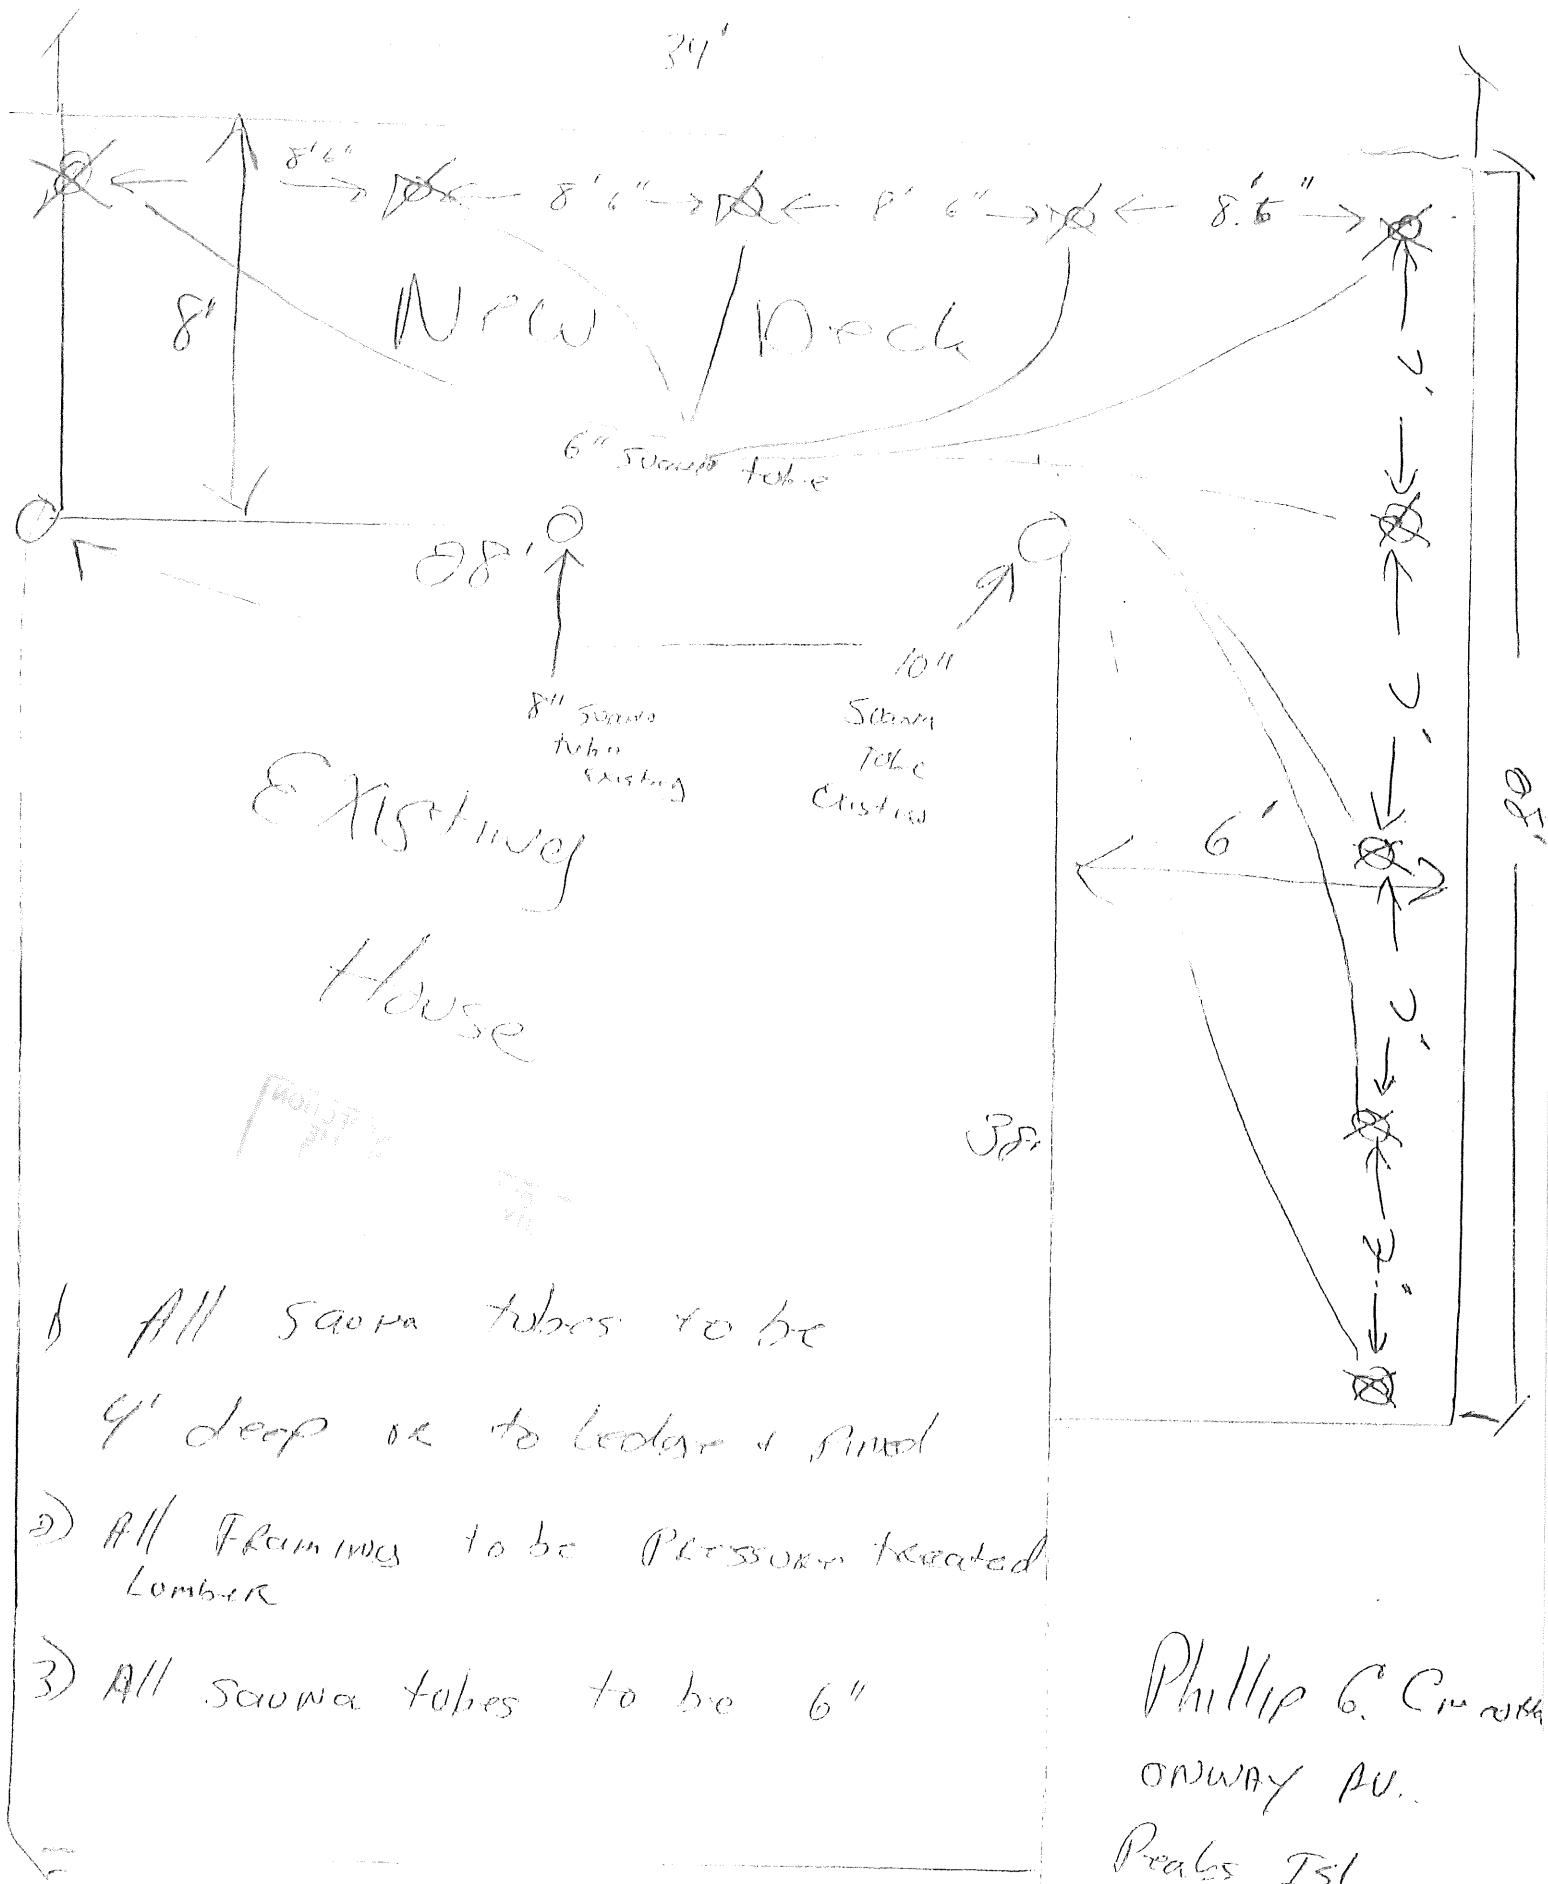 34'
8'6"
8' 6"
8' 6"
8.6"
8'
New Deck
6" Souna tube
28'
8" Souna
tube
Existing
10"
Souna
Tube
Existing
6'
Existing
House
38'
1) All sauna tubes to be
4' deep or to Ledge + Pined
2) All Framing to be Pressure treated
Lumber
3) All sauna tubes to be 6"
Phillip G.
ONWAY AV..
Peaks Isl